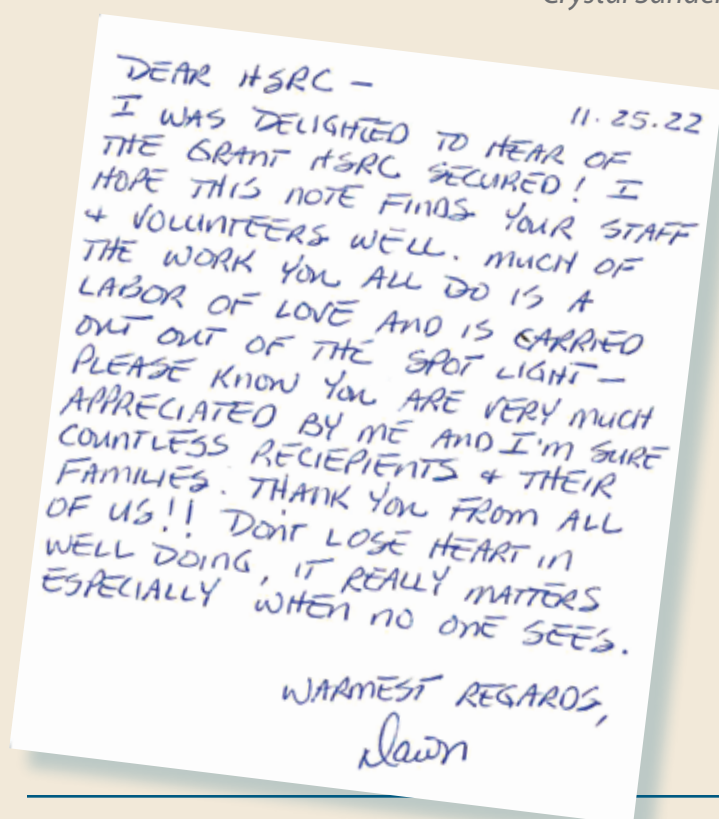 Crystal
DEAR HSRC —
11.25.22
I WAS DELIGHTED TO HEAR OF
THE GRANT HSRC SECURED! I
HOPE THIS NOTE FINDS YOUR STAFF
+ VOLUNTEERS WELL. MUCH OF
THE WORK YOU ALL DO IS A
LABOR OF LOVE AND IS CARRIED
OUT OUT OF THE SPOT LIGHT —
PLEASE KNOW YOU ARE VERY MUCH
APPRECIATED BY ME AND I'M SURE
COUNTLESS RECIEPIENTS + THEIR
FAMILIES. THANK YOU FROM ALL
OF US!! DONT LOSE HEART IN
WELL DOING, IT REALLY MATTERS
ESPECIALLY WHEN NO ONE SEES.
WARMEST REGARDS,
Dawn